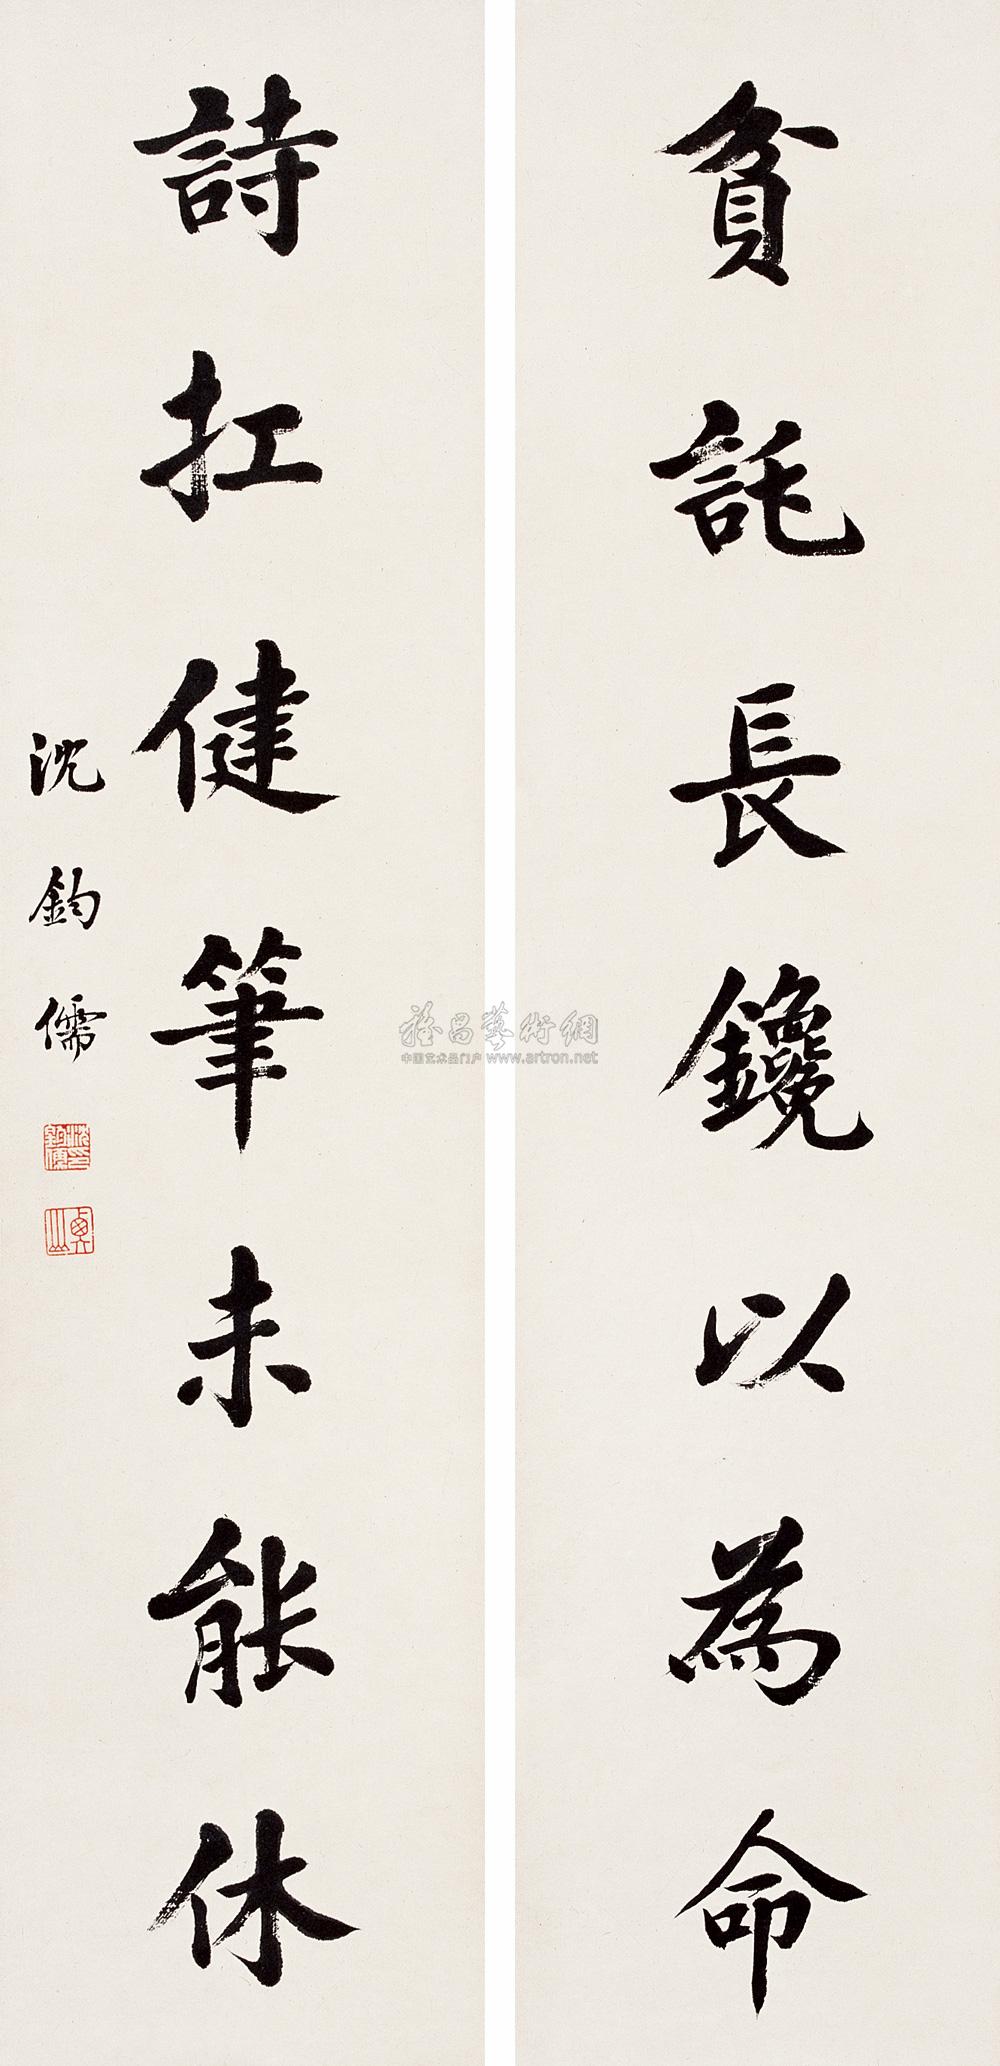 貧託長鑱以為命
詩扛健筆未能休
沈鈞儒
雅昌藝術網
中国艺术品门户 www.artron.net